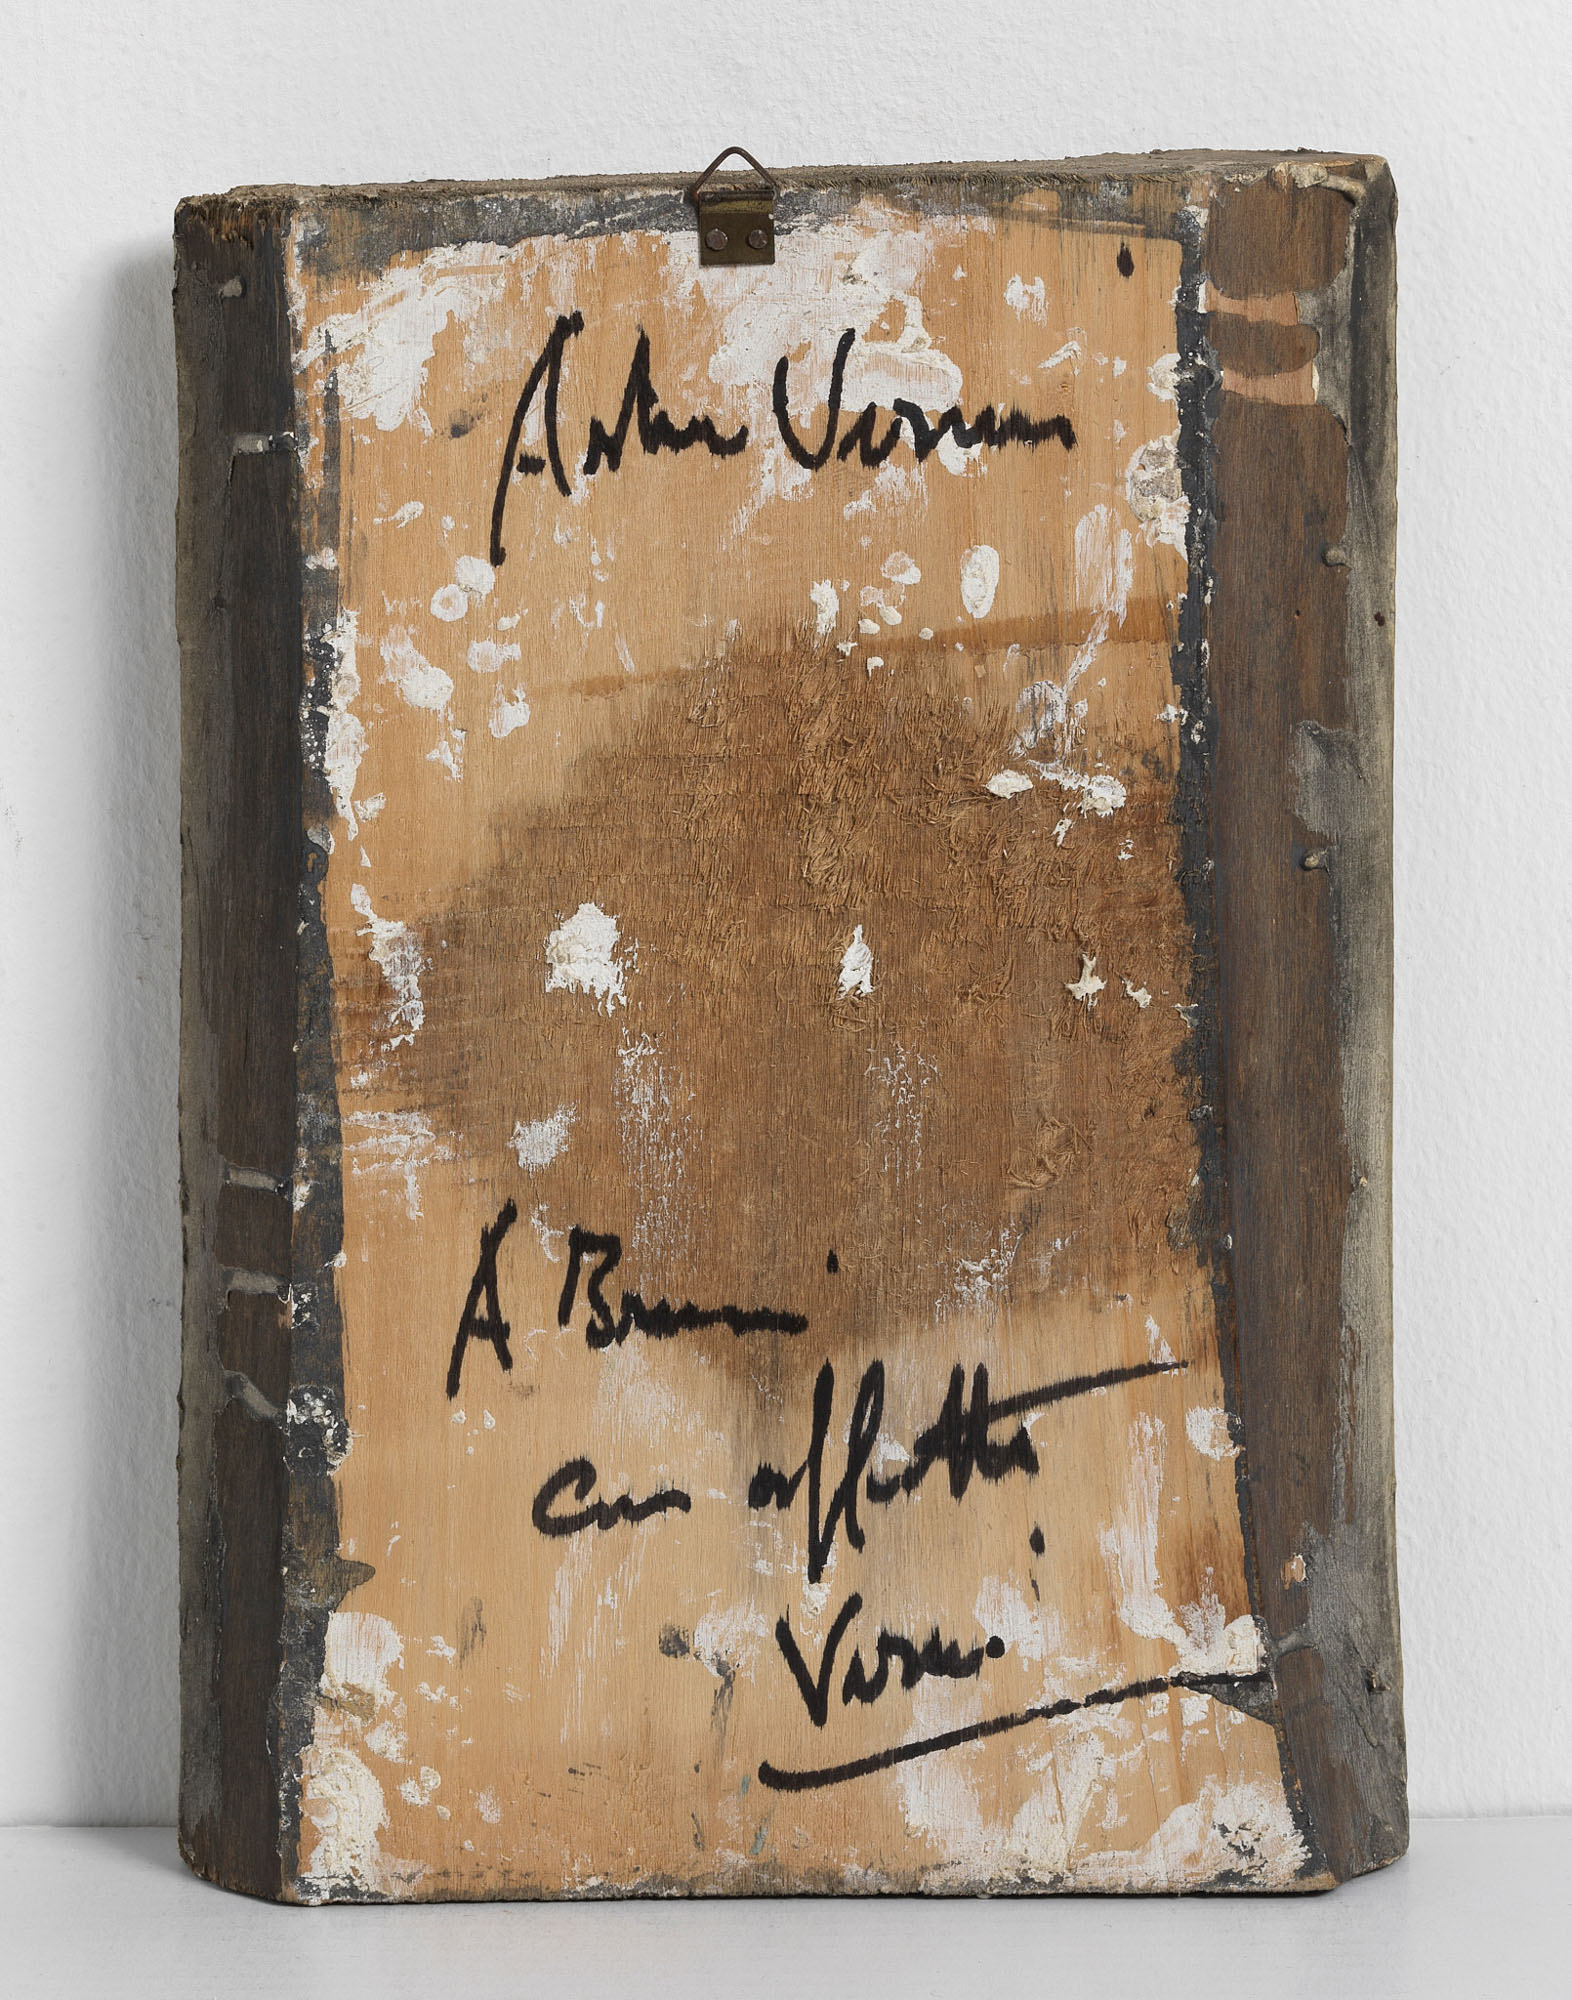 Arturo Vermi
A Bruni
con affetto
Vermi.